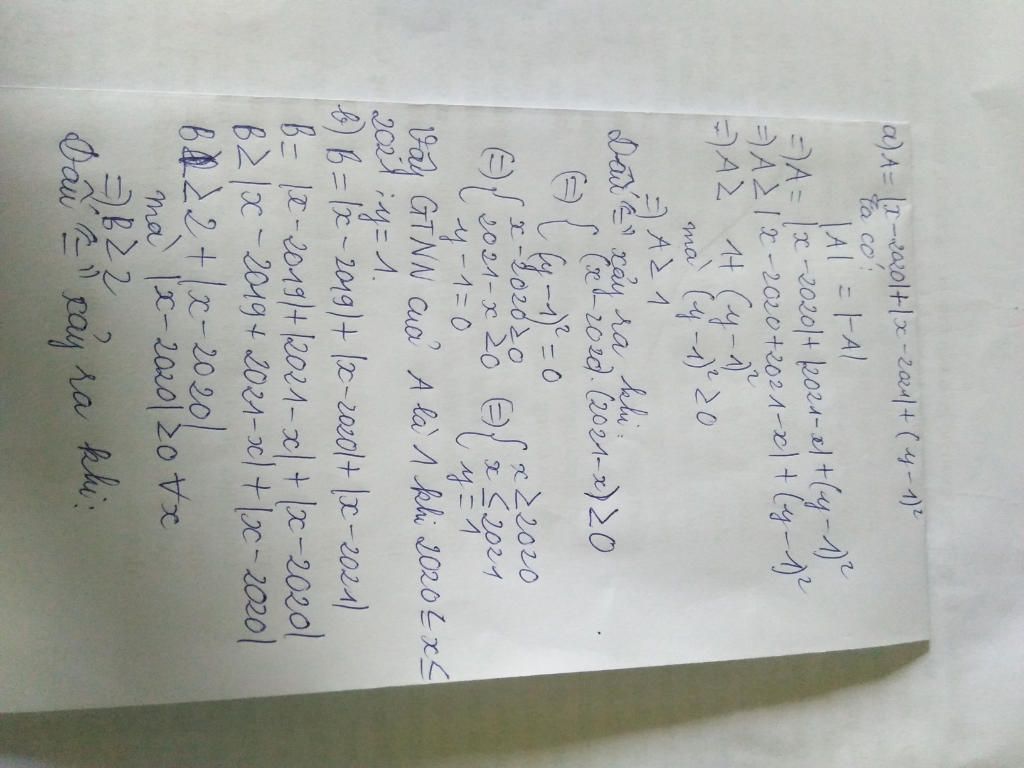 a) A = |x-2020| + |x-2021| + (y-1)²
Ta có:
|A| = |-A|
=) A = |x-2020| + |2021-x| + (y-1)²
=) A ≥ |x-2020+2021-x| + (y-1)²
=) A ≥ 1+ (y-1)²
mà (y-1)² ≥ 0
=) A ≥ 1
Dấu "=" xảy ra khi:
(x-2020).(2021-x) ≥ 0
(=) { (y-1)² = 0
(=) { x-2020 ≥ 0 (=) { x ≥ 2020
2021-x ≥ 0 x ≤ 2021
y-1=0 y = 1
Vậy GTNN của A là 1 khi 2020 ≤ x ≤
2021; y=1.
b) B = |x-2019| + |x-2020| + |x-2021|
B = |x-2019| + |2021-x| + |x-2020|
B ≥ |x-2019+2021-x| + |x-2020|
B ≥ 2 + |x-2020|
mà |x-2020| ≥ 0 ∀x
=) B ≥ 2
Dấu "=" xảy ra khi: